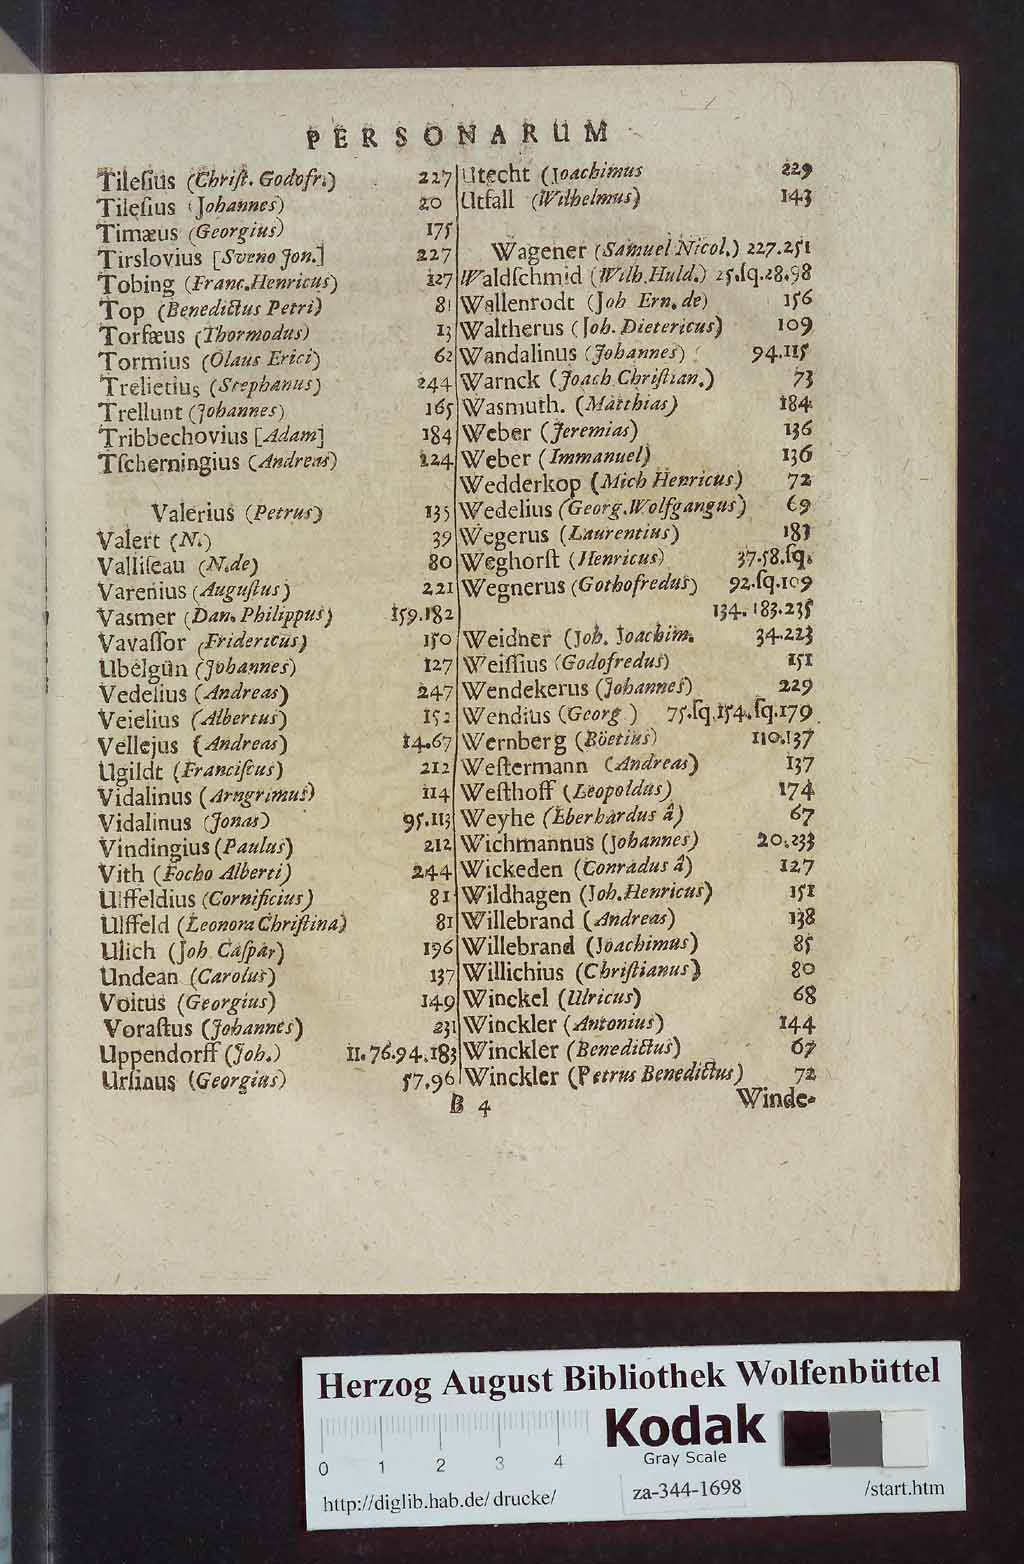 PERSONARUM
Tileſius (Chriſt. Godofr.) 227
Tileſius (Johannes) 20
Timæus (Georgius) 175
Tirslovius [Sveno Jon.] 227
Tobing (Franc. Henricus) 127
Top (Benedictus Petri) 81
Torfæus (Thormodus) 13
Tormius (Olaus Erici) 62
Trelietius (Stephanus) 244
Trellunt (Johannes) 165
Tribbechovius [Adam] 184
Tſcherningius (Andreas) 224
Valerius (Petrus) 135
Valert (N.) 39
Valliſeau (N.de) 80
Varenius (Auguſtus) 221
Vasmer (Dan. Philippus) 159.182
Vavaſſor (Fridericus) 150
Ubelgün (Johannes) 127
Vedelius (Andreas) 247
Veielius (Albertus) 152
Vellejus (Andreas) 14.67
Ugildt (Franciſcus) 212
Vidalinus (Arngrimus) 114
Vidalinus (Jonas) 95.113
Vindingius (Paulus) 212
Vith (Focho Alberti) 244
Ulffeldius (Cornificius) 81
Ulffeld (Leonora Chriſtina) 81
Ulich (Joh Caſpar) 196
Undean (Carolus) 137
Voitus (Georgius) 149
Voraſtus (Johannes) 231
Uppendorff (Joh.) 11.76.94.183
Urſinus (Georgius) 57.96
Utecht (Joachimus 229
Utfall (Wilhelmus) 143
Wagener (Samuel Nicol.) 227.251
Waldſchmid (Wilh. Huld.) 25.ſq.28.98
Wallenrodt (Joh Ern. de) 156
Waltherus (Joh. Dietericus) 109
Wandalinus (Johannes) 94.115
Warnck (Joach Chriſtian.) 73
Wasmuth. (Matthias) 184
Weber (Jeremias) 136
Weber (Immanuel) 136
Wedderkop (Mich Henricus) 72
Wedelius (Georg. Wolfgangus) 69
Wegerus (Laurentius) 183
Weghorſt (Henricus) 37.58.ſq.
Wegnerus (Gothofredus) 92.ſq.109
134.183.235
Weidner (Joh. Joachim. 34.223
Weiſſius (Godofredus) 151
Wendekerus (Johannes) 229
Wendius (Georg ) 75.ſq.154.ſq.179
Wernberg (Böetius) 110.137
Weſtermann (Andreas) 137
Weſthoff (Leopoldus) 174
Weyhe (Eberhardus â) 67
Wichmannus (Johannes) 20.233
Wickeden (Conradus â) 127
Wildhagen (Joh. Henricus) 151
Willebrand (Andreas) 138
Willebrand (Joachimus) 85
Willichius (Chriſtianus) 80
Winckel (Ulricus) 68
Winckler (Antonius) 144
Winckler (Benedictus) 67
Winckler (Petrus Benedictus) 72
B 4
Winde-
Herzog August Bibliothek Wolfenbüttel
Kodak
Gray Scale
0 1 2 3 4
http://diglib.hab.de/drucke/ za-344-1698 /start.htm